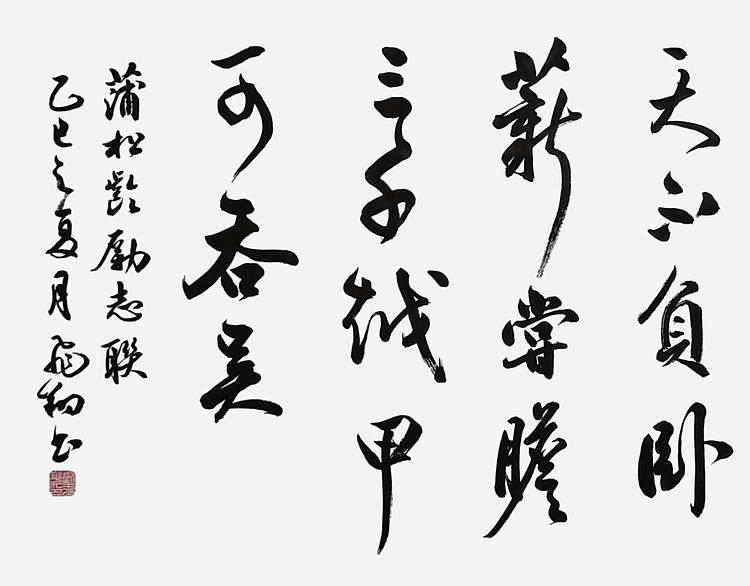 天不負卧
薪嘗膽
三千越甲
可吞吳
蒲松齡勵志聯
乙巳之夏月飛书